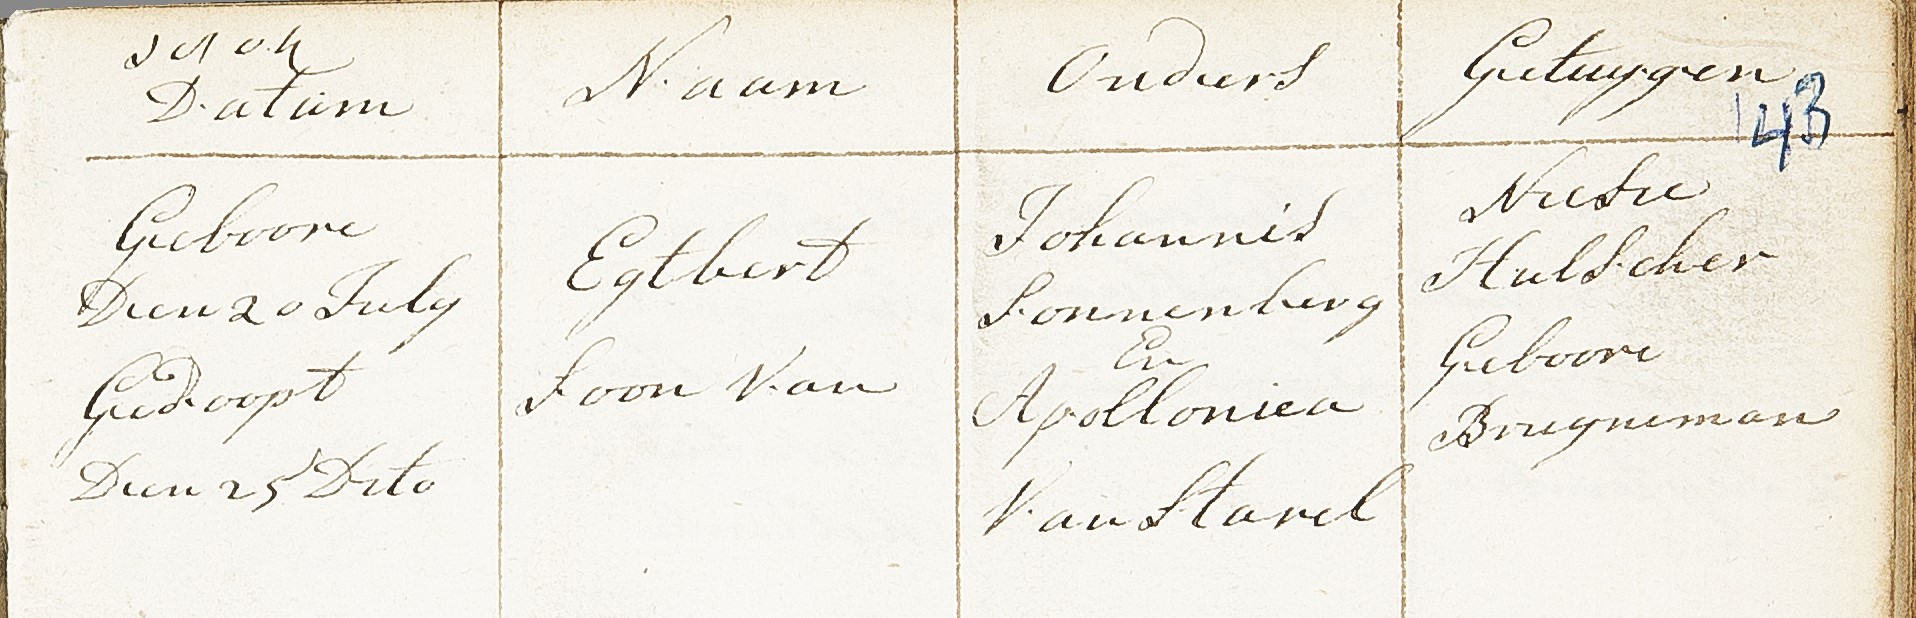 Datum
Naam
Ouders
Getuygen
143
Geboore
Den 20 July
Gedoopt
Den 25 Dito
Egtbert
Soon Van
Johannis
Sonnenberg
En
Apollonia
Van Starel
Hulscher
Geboore
Brugneman